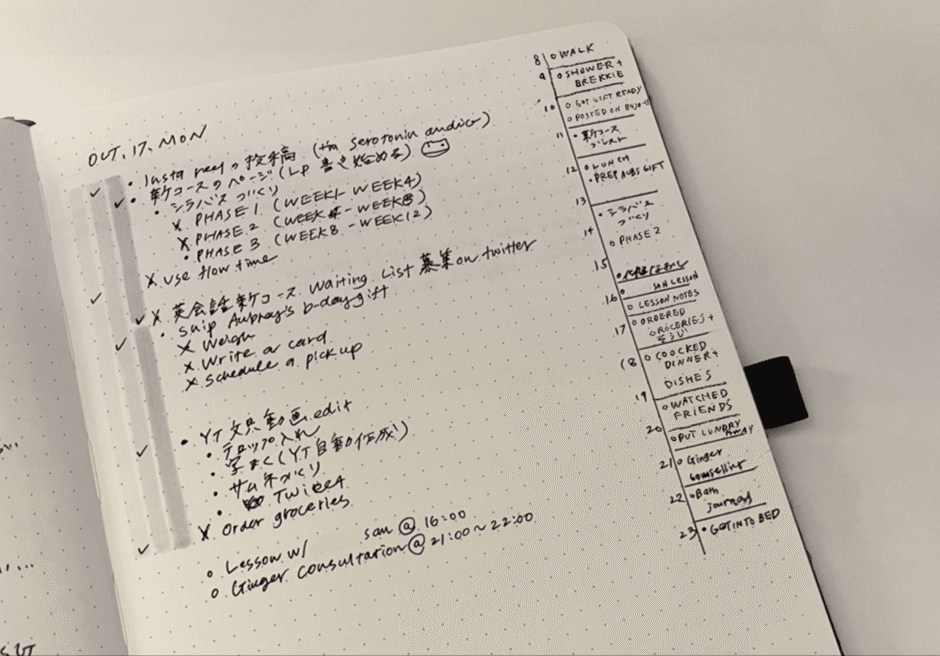 OCT, 17, MON
• Insta reelの投稿 (the serotonin audio)
• 新コースのページ (LP 書き始める)
• シラバスづくり
X PHASE 1 (WEEK1 - WEEK4)
X PHASE 2 (WEEK - WEEK8)
• PHASE 3 (WEEK8 - WEEK12)
X Use flow time
X 英会話新コース Waiting List 募集 on twitter
• Ship Aubrey's b-day gift
X Weigh
X Write a card
X Schedule a pickup
• YT 文具動画 edit
• テロップ入れ
• 字まく (YT自動作成)
• サムネづくり
• Tweet
X Order groceries
○ Lesson w/ san @ 16:00
○ Ginger Consultation @ 21:00 ~ 22:00
8 ○ WALK
9 ○ SHOWER +
BREKKIE
10 ○ GOT GIFT READY
○ POSTED ON
11 • 新コース
12 ○ LUNCH
• PREP AUBS GIFT
13
• シラバス
づくり
14 ○ PHASE 2
15
SAN LESSON
16 ○ LESSON NOTES
17 ○ ORDERED
GROCERIES +
そうじ
18 ○ COOCKED
DINNER +
DISHES
19 ○ WATCHED
FRIENDS
20 ○ PUT LUNDRY AWAY
21 ○ Ginger
counselling
22 ○ Bath
journal
23 • GET INTO BED